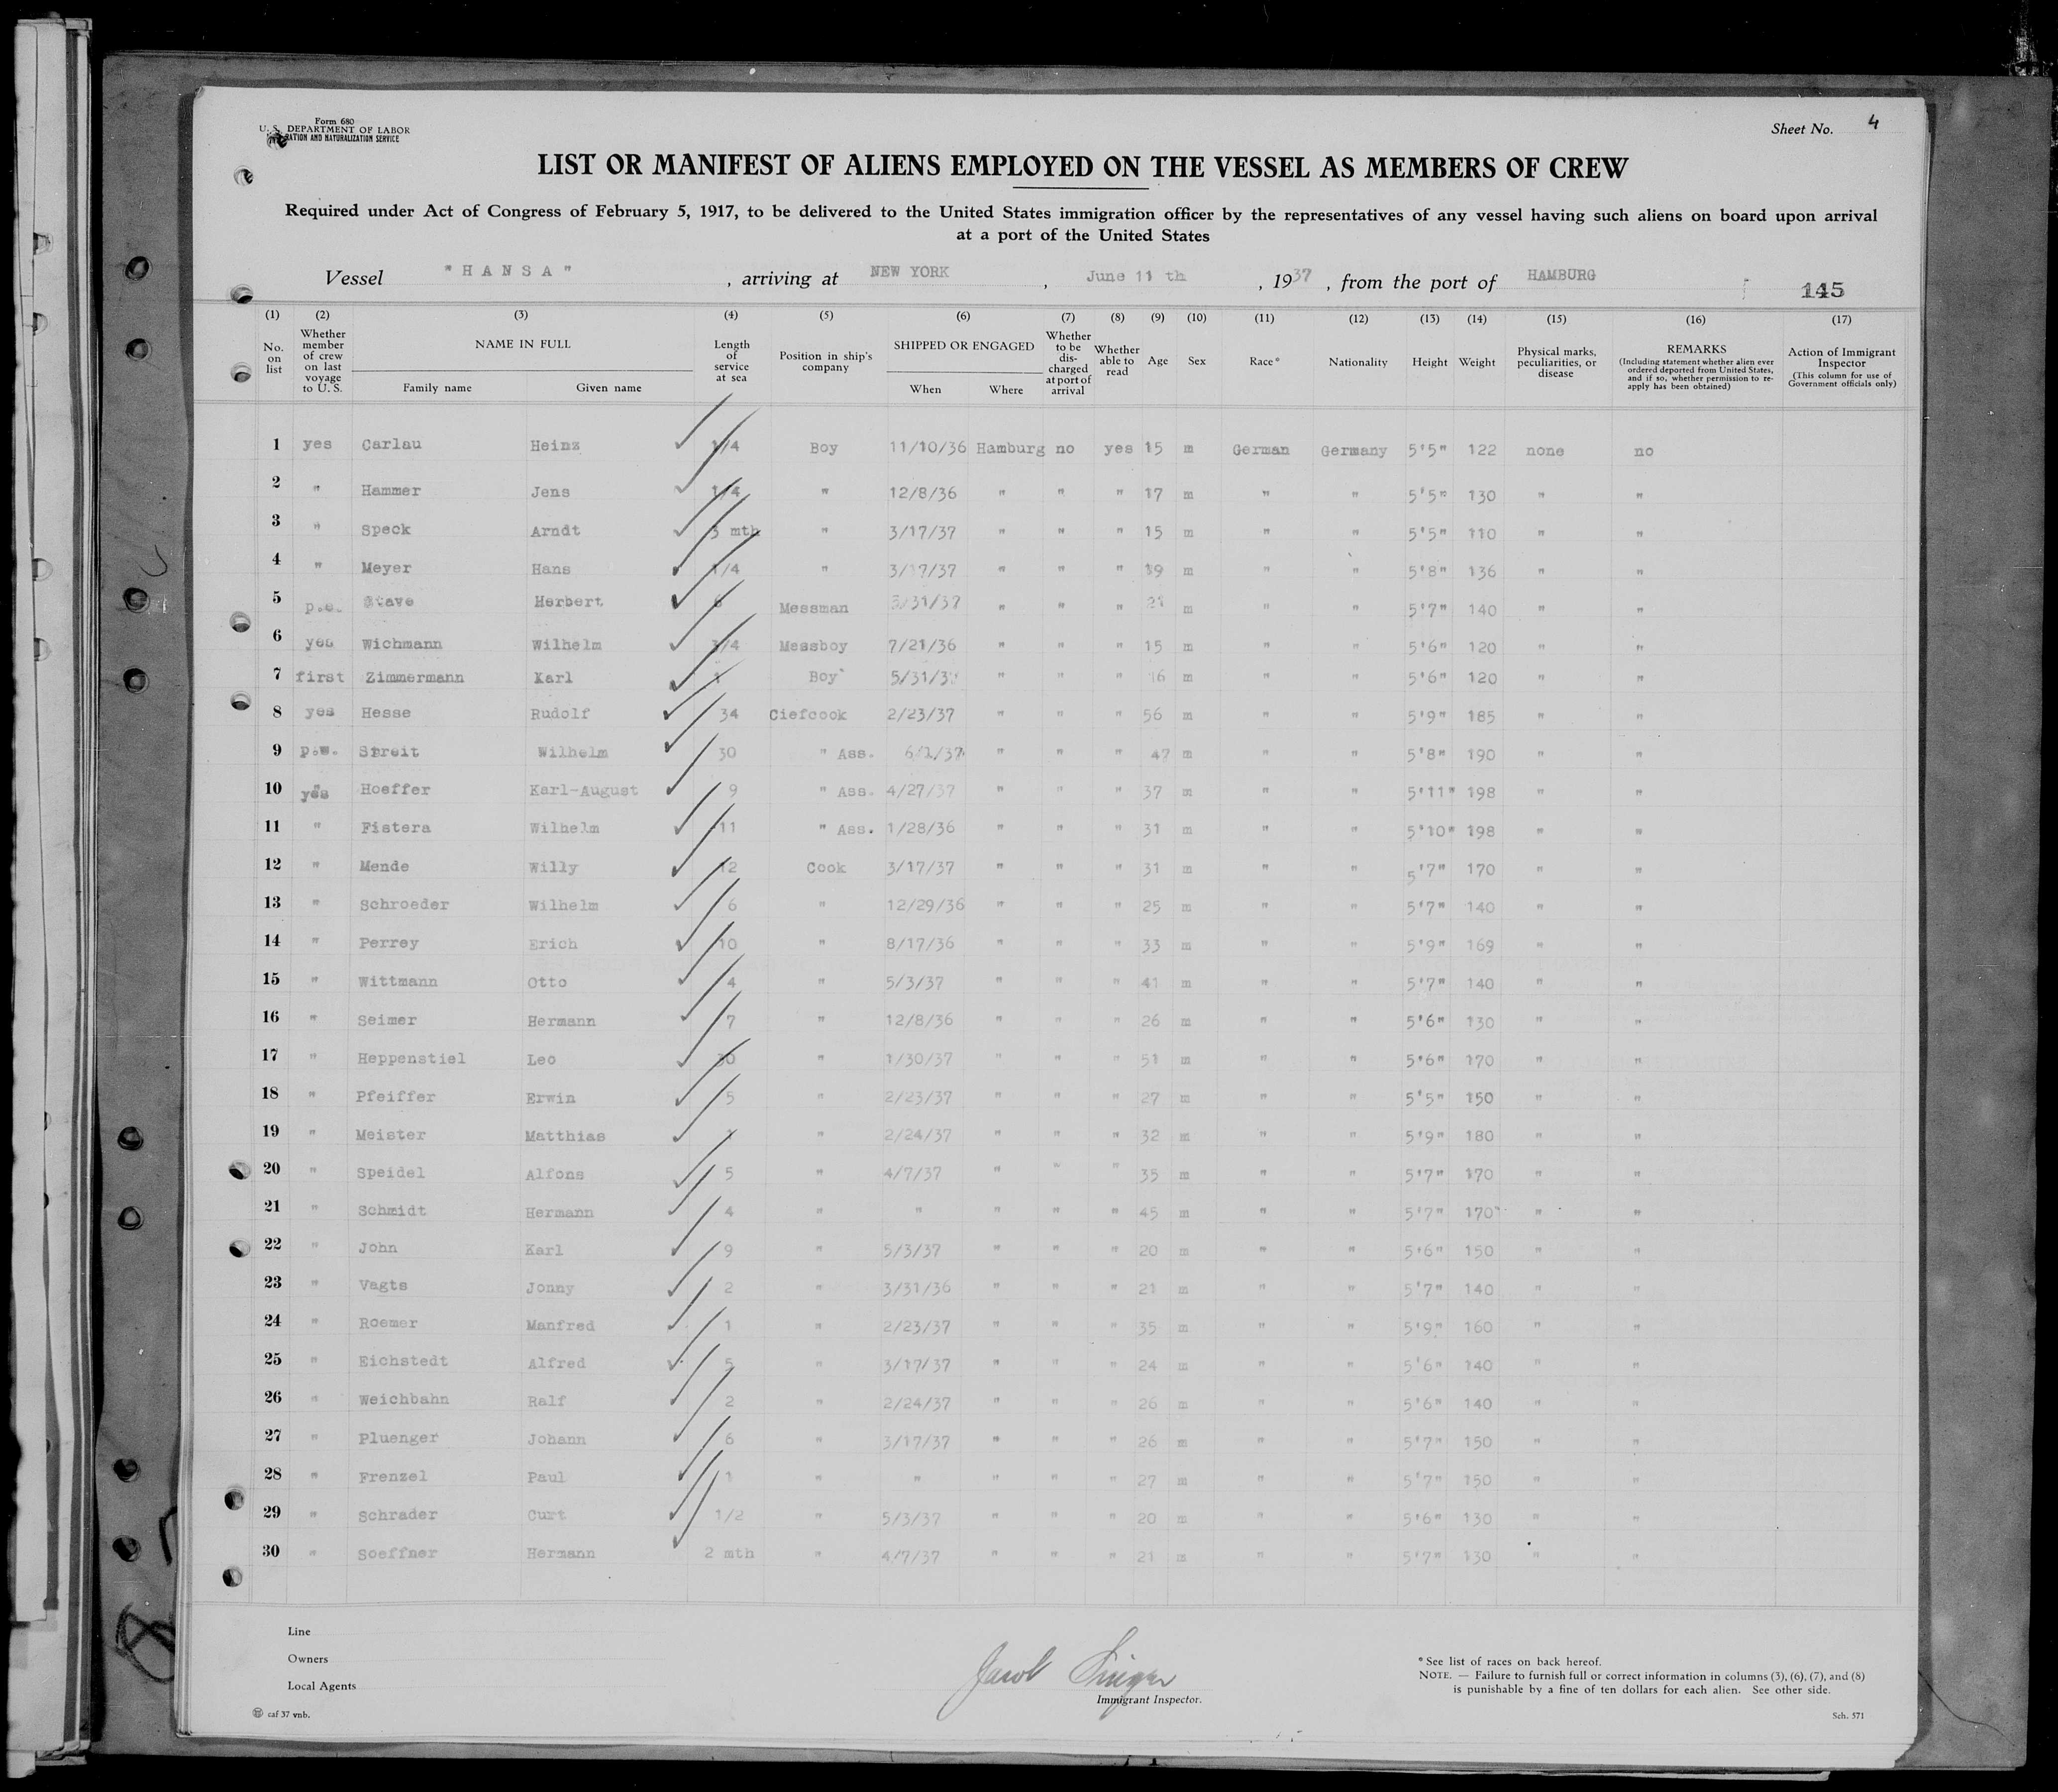 Form 680
U. S. DEPARTMENT OF LABOR
RATION AND NATURALIZATION SERVICE
Sheet No. 4
LIST OR MANIFEST OF ALIENS EMPLOYED ON THE VESSEL AS MEMBERS OF CREW
Required under Act of Congress of February 5, 1917, to be delivered to the United States immigration officer by the representatives of any vessel having such aliens on board upon arrival
at a port of the United States
Vessel "HANSA", arriving at NEW YORK, June 11 th, 1937, from the port of HAMBURG
145
(1) (2) (3) (4) (5) (6) (7) (8) (9) (10) (11) (12) (13) (14) (15) (16) (17)
No. on list
Whether member of crew on last voyage to U. S.
NAME IN FULL
Family name Given name
Length of service at sea
Position in ship's company
SHIPPED OR ENGAGED
When Where
Whether to be discharged at port of arrival
Whether able to read
Age
Sex
Race*
Nationality
Height
Weight
Physical marks, peculiarities, or disease
REMARKS
(Including statement whether alien ever ordered deported from United States, and if so, whether permission to reapply has been obtained)
Action of Immigrant Inspector
(This column for use of Government officials only)
1 yes Carlau Heinz 1/4 Boy 11/10/36 Hamburg no yes 15 m German Germany 5'5" 122 none no
2 " Hammer Jens 1/4 " 12/8/36 " " " 17 m " " 5'5" 130 " "
3 " Speck Arndt 3 mth " 3/17/37 " " " 15 m " " 5'5" 110 " "
4 " Meyer Hans 1/4 " 3/17/37 " " " 19 m " " 5'8" 136 " "
5 Herbert Messman " " " 21 m " " 5'7" 140 " "
6 yes Wichmann Wilhelm 3/4 Messboy 7/21/36 " " " 15 m " " 5'6" 120 " "
7 first Zimmermann Karl Boy 5/31/37 " " " 16 m " " 5'6" 120 " "
8 yes Hesse Rudolf 34 Ciefcook 2/23/37 " " " 56 m " " 5'9" 185 " "
9 p.w. Spreit Wilhelm 30 " Ass. 6/1/37 " " " 47 m " " 5'8" 190 " "
10 yes Hoeffer Karl-August 9 " Ass. 4/27/37 " " " 37 m " " 5'11" 198 " "
11 " Fistera Wilhelm 11 " Ass. 1/28/36 " " " 31 m " " 5'10" 198 " "
12 " Mende Willy 12 Cook 3/17/37 " " " 31 m " " 5'7" 170 " "
13 " Schroeder Wilhelm 6 " 12/29/36 " " " 25 m " " 5'7" 140 " "
14 " Perrey Erich 10 " 8/17/36 " " " 33 m " " 5'9" 169 " "
15 " Wittmann Otto 4 " 5/3/37 " " " 41 m " " 5'7" 140 " "
16 " Seimer Hermann 7 " 12/8/36 " " " 26 m " " 5'6" 130 " "
17 " Heppenstiel Leo 30 " 1/30/37 " " " 51 m " " 5'6" 170 " "
18 " Pfeiffer Erwin 5 " 2/23/37 " " " 27 m " " 5'5" 150 " "
19 " Meister Matthias " 2/24/37 " " " 32 m " " 5'9" 180 " "
20 " Speidel Alfons 5 " 4/7/37 " " " 35 m " " 5'7" 170 " "
21 " Schmidt Hermann 4 " " " " " 45 m " " 5'7" 170 " "
22 " John Karl 9 " 5/3/37 " " " 20 m " " 5'6" 150 " "
23 " Vagts Jonny 2 " 3/31/36 " " " 21 m " " 5'7" 140 " "
24 " Roemer Manfred 1 " 2/23/37 " " " 35 m " " 5'9" 160 " "
25 " Eichstedt Alfred 5 " 3/17/37 " " " 24 m " " 5'6" 140 " "
26 " Weichbahn Ralf 2 " 2/24/37 " " " 26 m " " 5'6" 140 " "
27 " Pluenger Johann 6 " 3/17/37 " " " 26 m " " 5'7" 150 " "
28 " Frenzel Paul 1 " " " " " 27 m " " 5'7" 150 " "
29 " Schrader Curt 1/2 " 5/3/37 " " " 20 m " " 5'6" 130 " "
30 " Soeffner Hermann 2 mth " 4/7/37 " " " 21 m " " 5'7" 130 " "
Line
Owners
Local Agents
Jacob Singer
Immigrant Inspector.
* See list of races on back hereof.
NOTE. — Failure to furnish full or correct information in columns (3), (6), (7), and (8)
is punishable by a fine of ten dollars for each alien. See other side.
caf 37 vnb.
Sch. 571